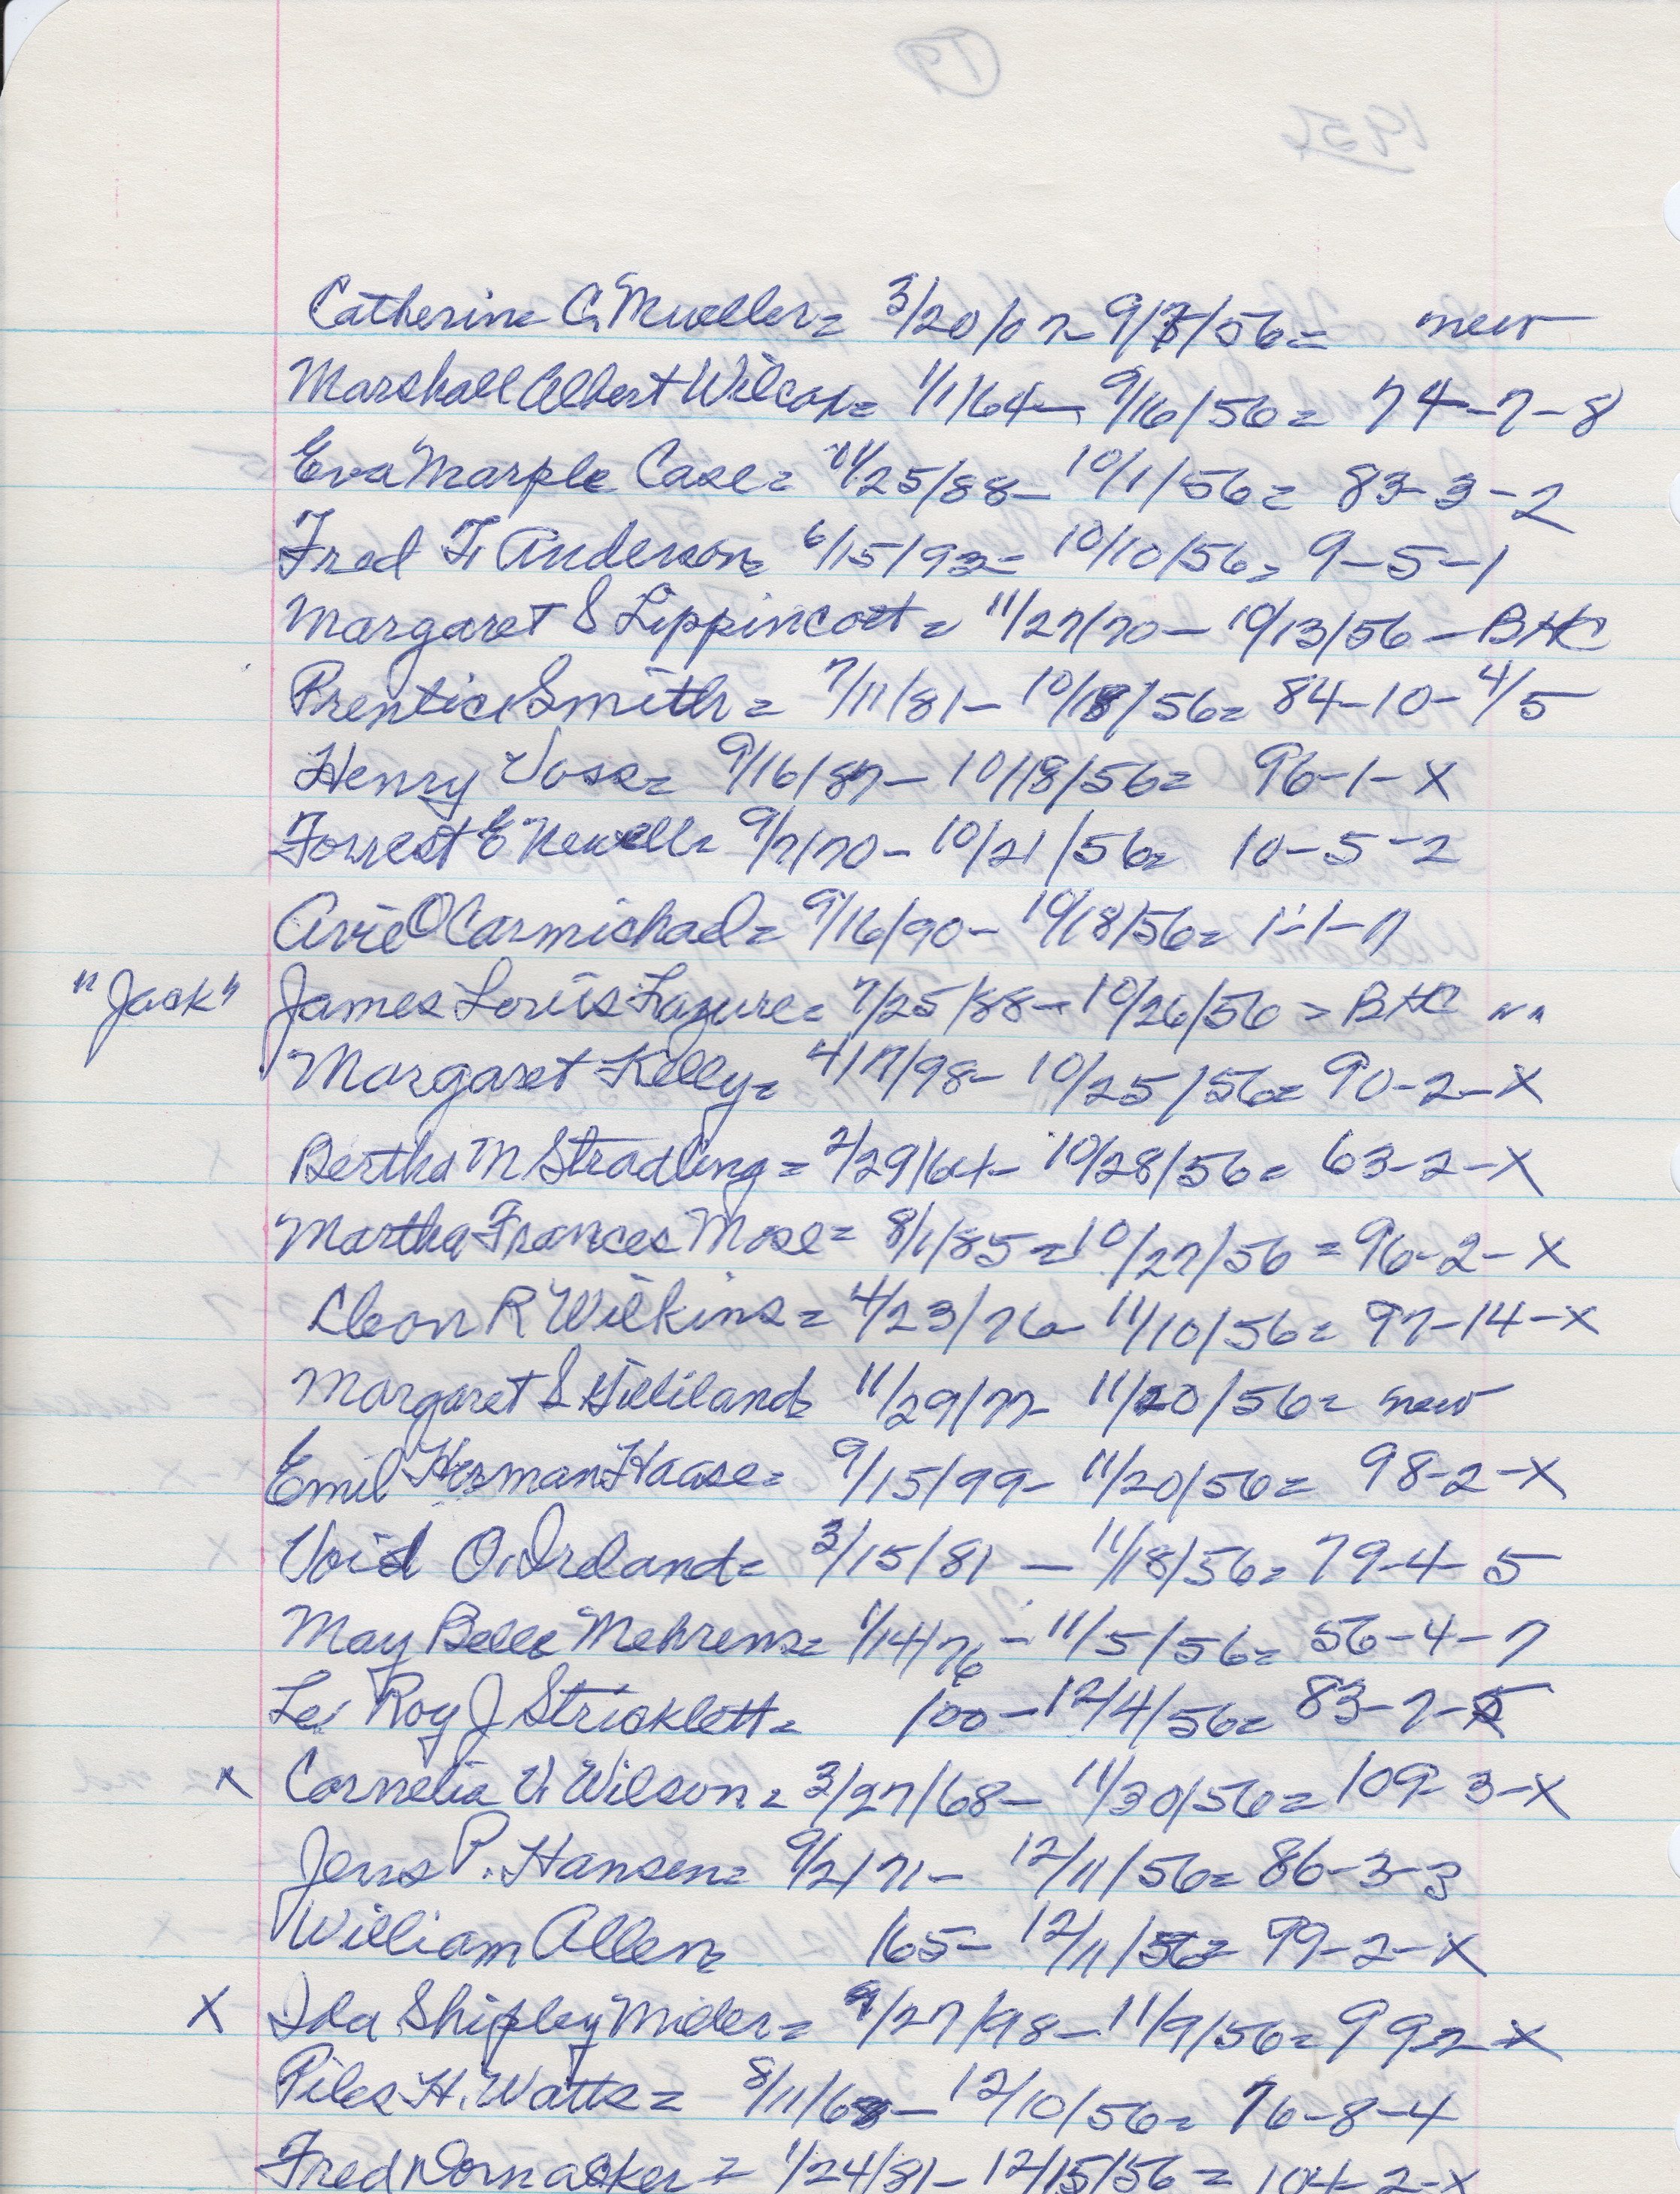 Catherine C. Mueller = 3/20/07 - 9/7/56 = new
Marshall Albert Wilcox = 1/1/64 - 9/16/56 = 74-7-8
Eva Marple Case = 11/25/88 - 10/1/56 = 83-3-2
Fred F. Anderson = 6/15/93 = 10/10/56 = 9-5-1
Margaret S Lippincott = 11/27/70 - 10/13/56 - BHC
Prentice Smith = 7/11/81 - 10/18/56 = 84-10-4/5
Henry Vosse = 9/16/87 - 10/18/56 = 96-1-X
Forrest E Newell = 9/7/70 - 10/21/56 = 10-5-2
Avie O Carmichael = 9/16/90 - 10/18/56 = 1-1-7
"Jack" James Louis Lazure = 7/25/88 - 10/26/56 = BHC " "
Margaret Kelly = 4/17/98 - 10/25/56 = 90-2-X
Bertha M Stradling = 2/29/64 - 10/28/56 = 63-2-X
Martha Frances Mose = 8/1/85 = 10/27/56 = 96-2-X
Cleon R Wilkins = 4/23/76 - 11/10/56 = 97-14-X
Margaret S Gilliland = 11/29/77 - 11/20/56 = new
Emil Herman Haase = 9/15/99 - 11/20/56 = 98-2-X
Void O. Ireland = 3/15/81 - 11/18/56 = 79-4-5
May Belle Mehrens = 1/14/76 - 11/5/56 = 56-4-7
Le Roy J Stricklett = /00 - 12/4/56 = 83-7-5
x Cornelia V. Wilson = 3/27/68 - 11/30/56 = 109-3-X
Jens P. Hansen = 9/2/71 - 12/11/56 = 86-3-3
William Allen = /65 - 12/11/56 = 99-2-X
X Ida Shipley Miller = 9/27/98 - 11/9/56 = 99-2-X
Piles H. Watts = 8/11/68 - 12/10/56 = 76-8-4
Fred Dornacker = 1/24/81 - 12/15/56 = 104-2-X